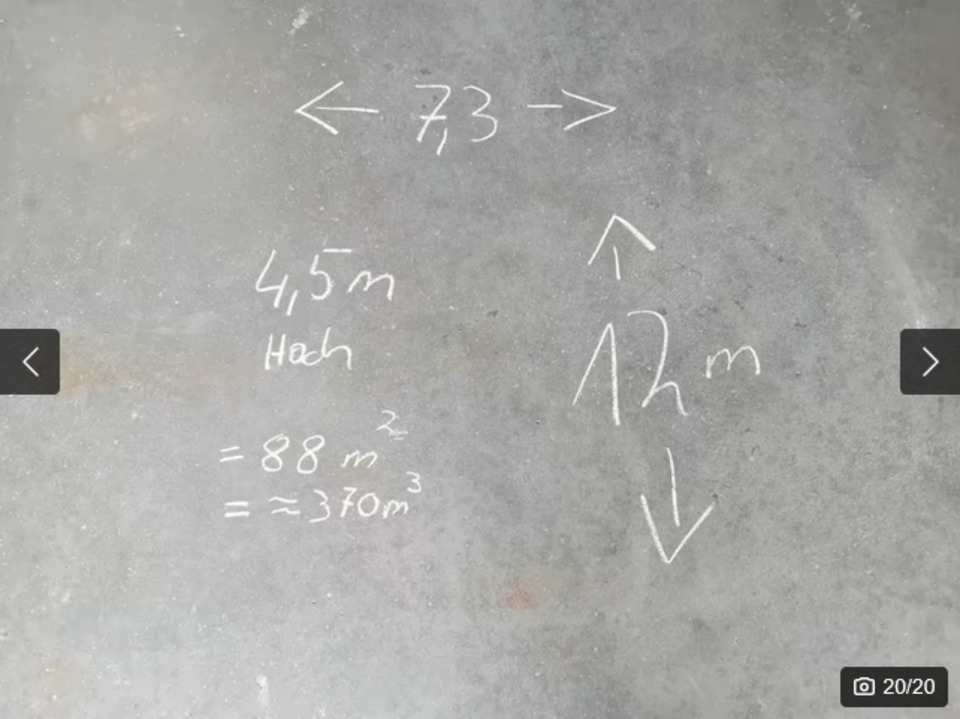 <- 7,3 ->
4,5m
Hoch
12 m
= 88 m²
= ≈370m³
20/20